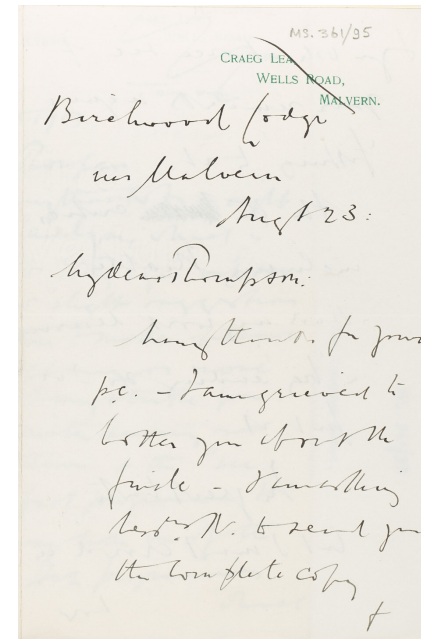 MS. 361/95
CRAEG LEA
WELLS ROAD,
MALVERN.
Birchwood Lodge
nr Malvern
Augt 23:
My dear Thompson:
Many thanks for your
p.c. – I am grieved to
bother you about the
finale – I am asking
Messrs N. to send you
the complete copy